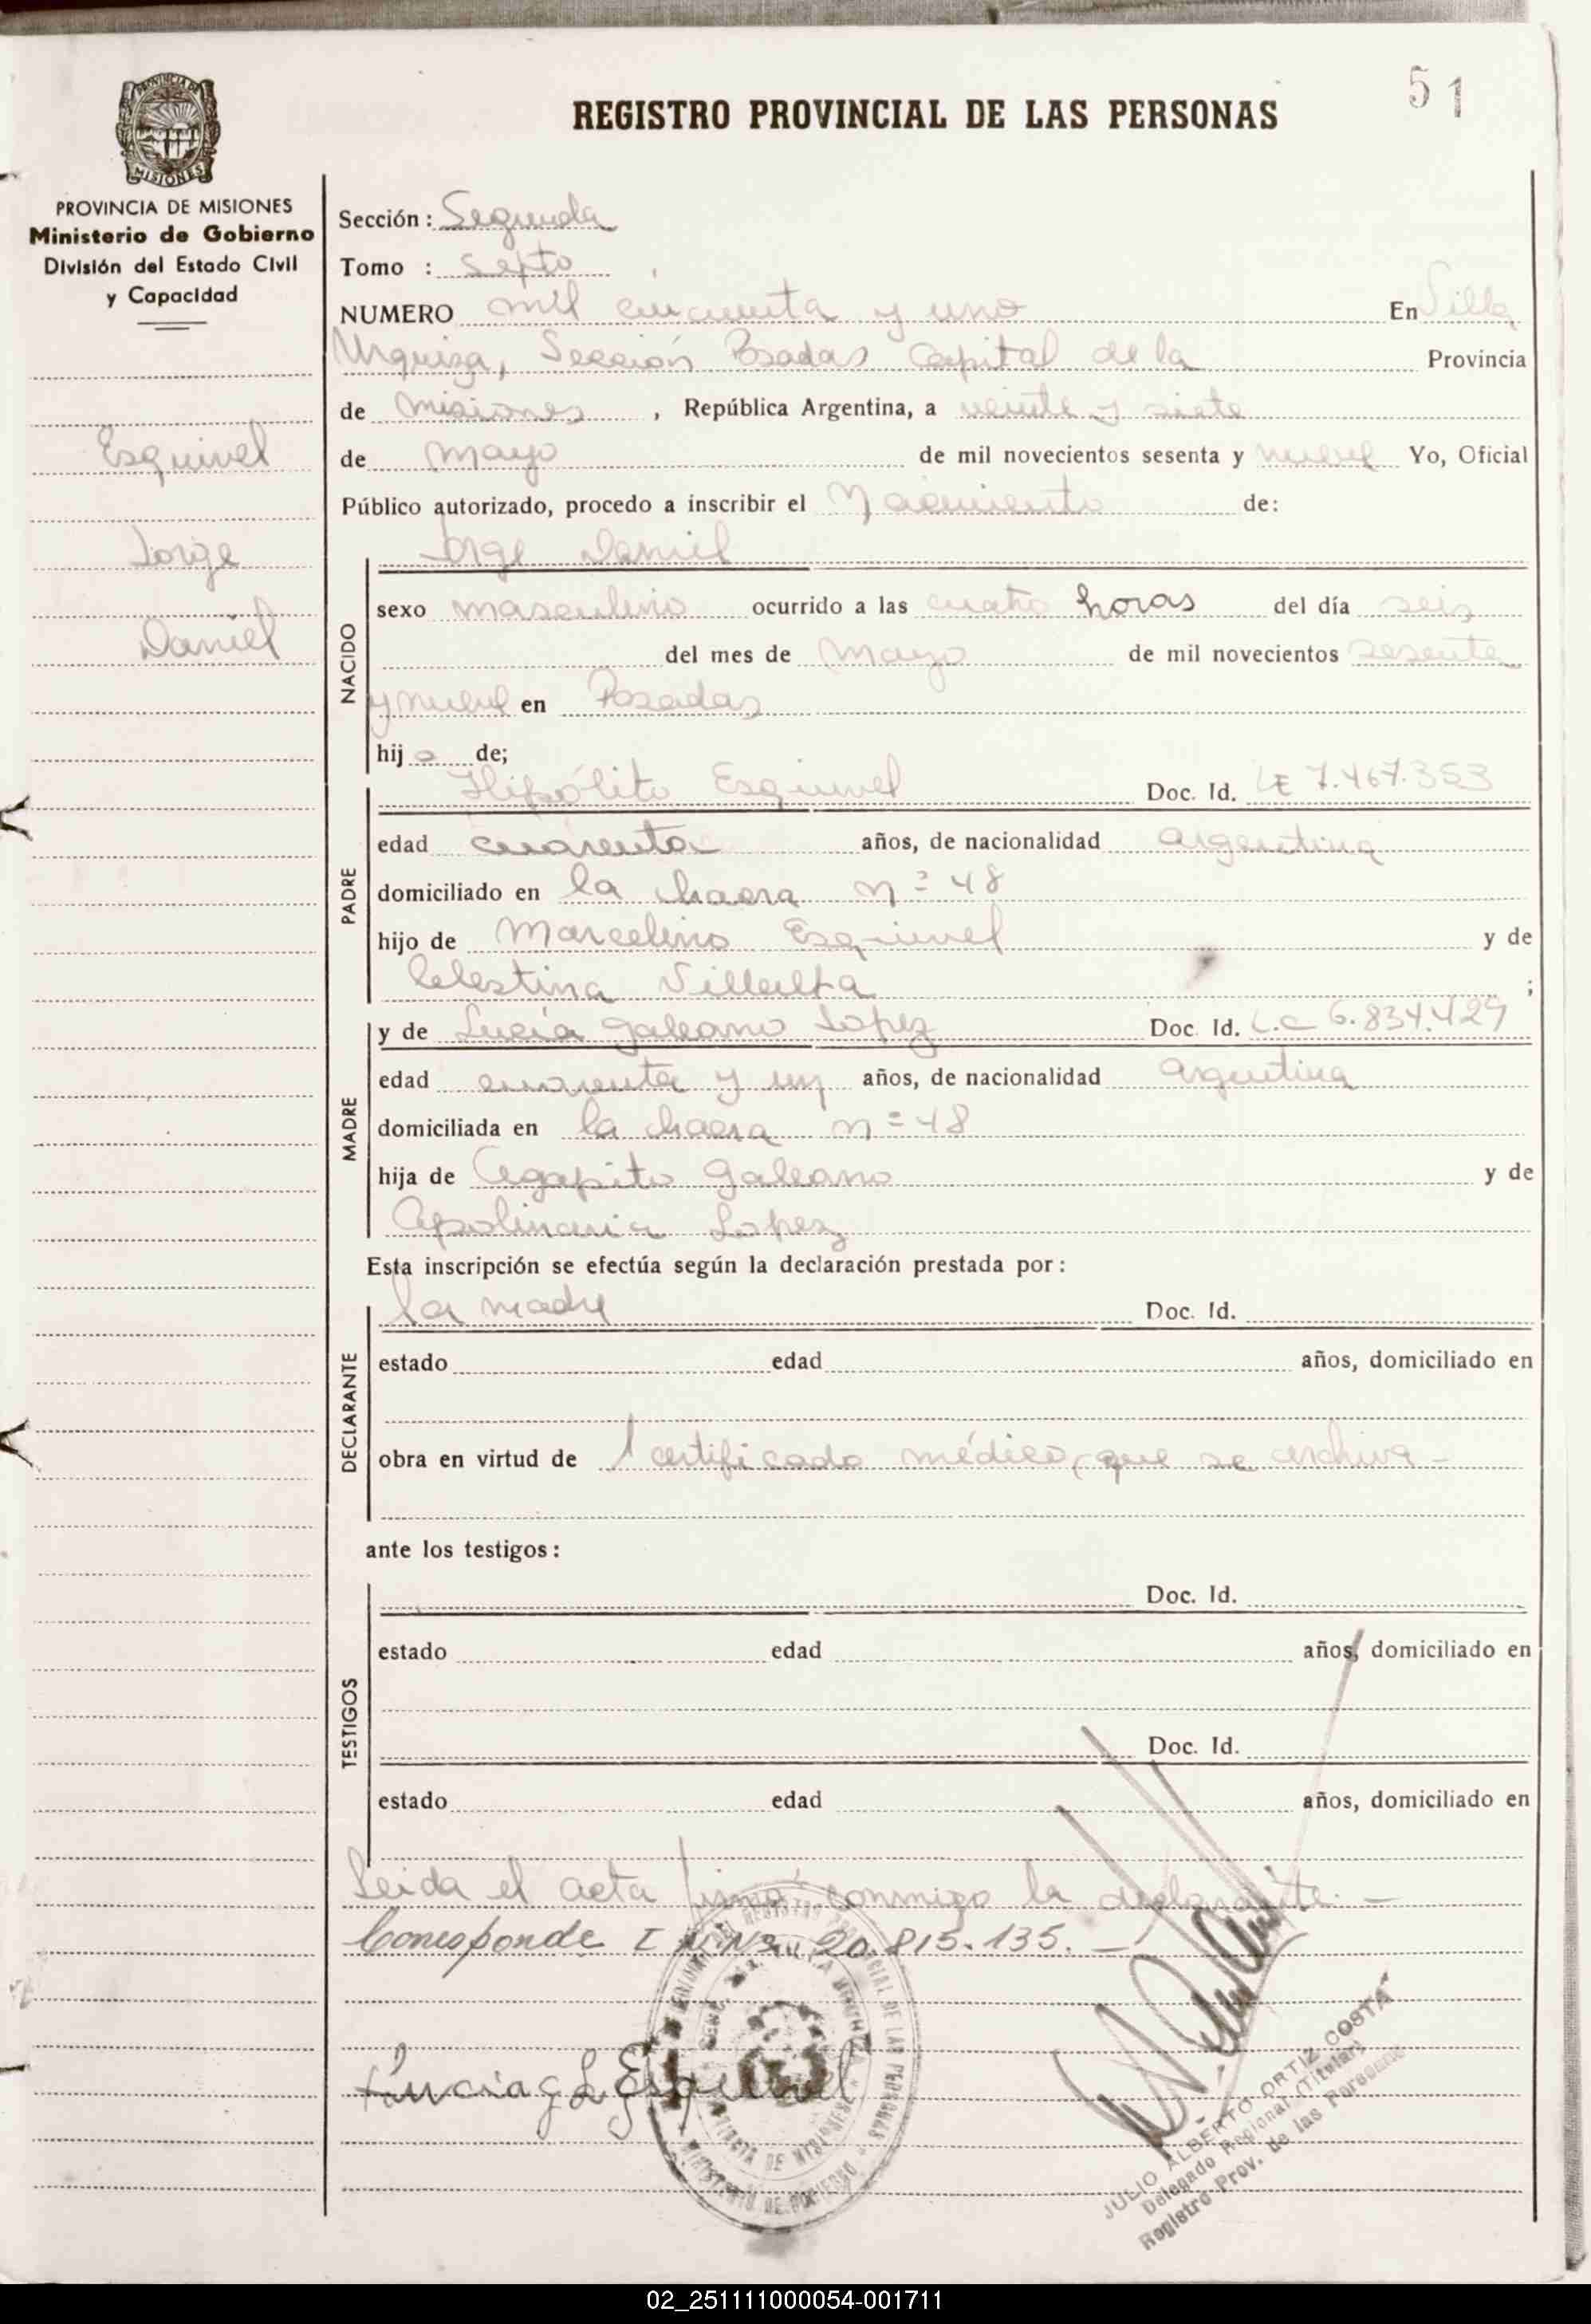 51
REGISTRO PROVINCIAL DE LAS PERSONAS
PROVINCIA DE MISIONES
MISIONES
PROVINCIA DE MISIONES
Ministerio de Gobierno
División del Estado Civil
y Capacidad
Esquivel
Jorge
Daniel
Sección: Segunda
Tomo : Septo
NUMERO mil cincuenta y uno En Villa
Urquiza, Sección Posadas Capital de la Provincia
de Misiones, República Argentina, a veinte y siete
de Mayo de mil novecientos sesenta y nueve Yo, Oficial
Público autorizado, procedo a inscribir el Nacimiento de:
Jorge Daniel
NACIDO
sexo masculino ocurrido a las cuatro horas del día seis
del mes de Mayo de mil novecientos sesenta
y nueve en Posadas
hijo de;
PADRE
Hipólito Esquivel Doc. Id. LE 7.467.353
edad cuarenta años, de nacionalidad argentina
domiciliado en la chacra nº 48
hijo de Marcelino Esquivel y de
Celestina Villalba ;
MADRE
y de Lucía Galeano Lopez Doc. Id. L.C 6.834.429
edad cuarenta y un años, de nacionalidad argentina
domiciliada en la chacra nº 48
hija de Agapito Galeano y de
Apolinaria Lopez
Esta inscripción se efectúa según la declaración prestada por:
DECLARANTE
la madre Doc. Id.
estado edad años, domiciliado en
obra en virtud de 1 certificado médico, que se archiva -
ante los testigos:
TESTIGOS
Doc. Id.
estado edad años, domiciliado en
Doc. Id.
estado edad años, domiciliado en
Leida el acta firmó conmigo la declarante. -
Corresponde I M. N° 20.815.135. -
Lucia g L Esquivel
REGISTRO PROVINCIAL DE LAS PERSONAS
MINISTERIO DE GOBIERNO
JULIO ALBERTO ORTIZ COSTA
Delegado Regional (Titular)
Registro Prov. de las Personas
02_251111000054-001711